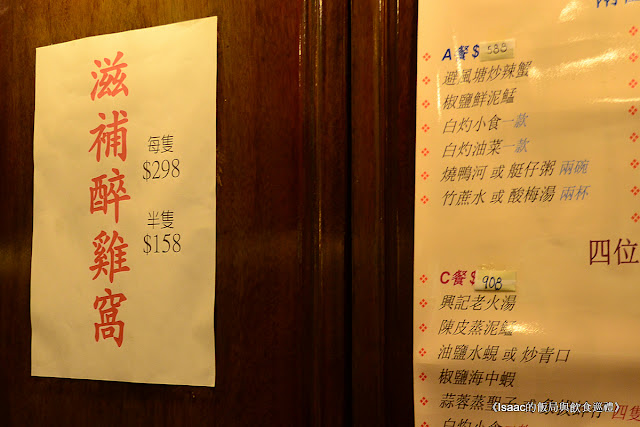 滋補醉雞窩
每隻
$298
半隻
$158
A餐$ 588
避風塘炒辣蟹
椒鹽鮮泥鯭
白灼小食一款
白灼油菜一款
燒鴨河 或 艇仔粥 兩碗
竹蔗水 或 酸梅湯 兩杯
四位
C餐$ 908
興記老火湯
陳皮蒸泥鯭
油鹽水蜆 或 炒青口
椒鹽海中蝦
蒜蓉蒸聖子 或
四隻
白灼小食
《Isaac的飯局與飲食巡禮》